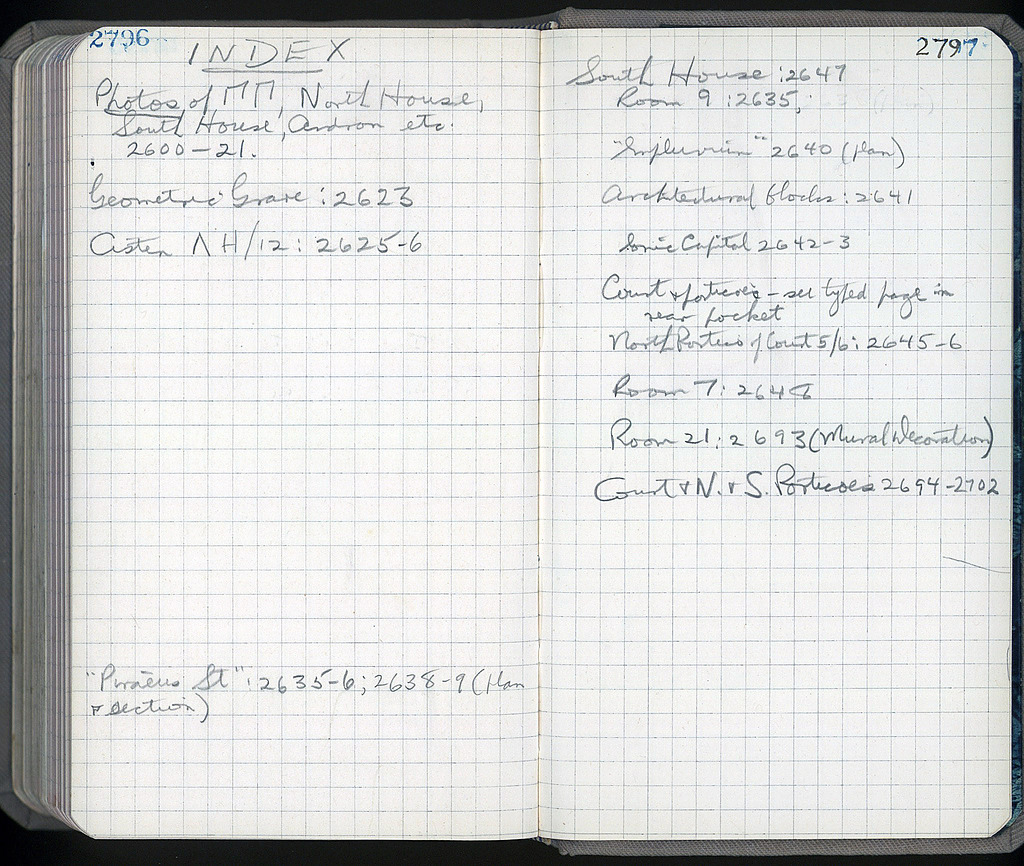 2796
INDEX
Photos of ΠΠ, North House,
South House, Andron etc.
2600-21.
Geometric Grave : 2623
Cistern ΛH/12 : 2625-6
"Piraeus St" : 2635-6; 2638-9 (plan
& section)
2797
South House : 2647
Room 9 : 2635,
"Impluvium" 2640 (plan)
Architectural blocks : 2641
Ionic Capital 2642-3
Court & porticoes - see typed page in
rear pocket
North Portico of Court 5/6 : 2645-6
Room 7 : 2648
Room 21 : 2693 (Mural Decoration)
Court & N. & S. Porticoes 2694-2702